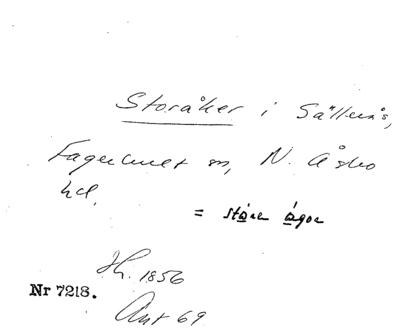 Storåker i Sällerås,
Fagerhult sn, N. Åsbo
hd.
= ståra ågor
Jh. 1856
Nr 7218.
Ant 69